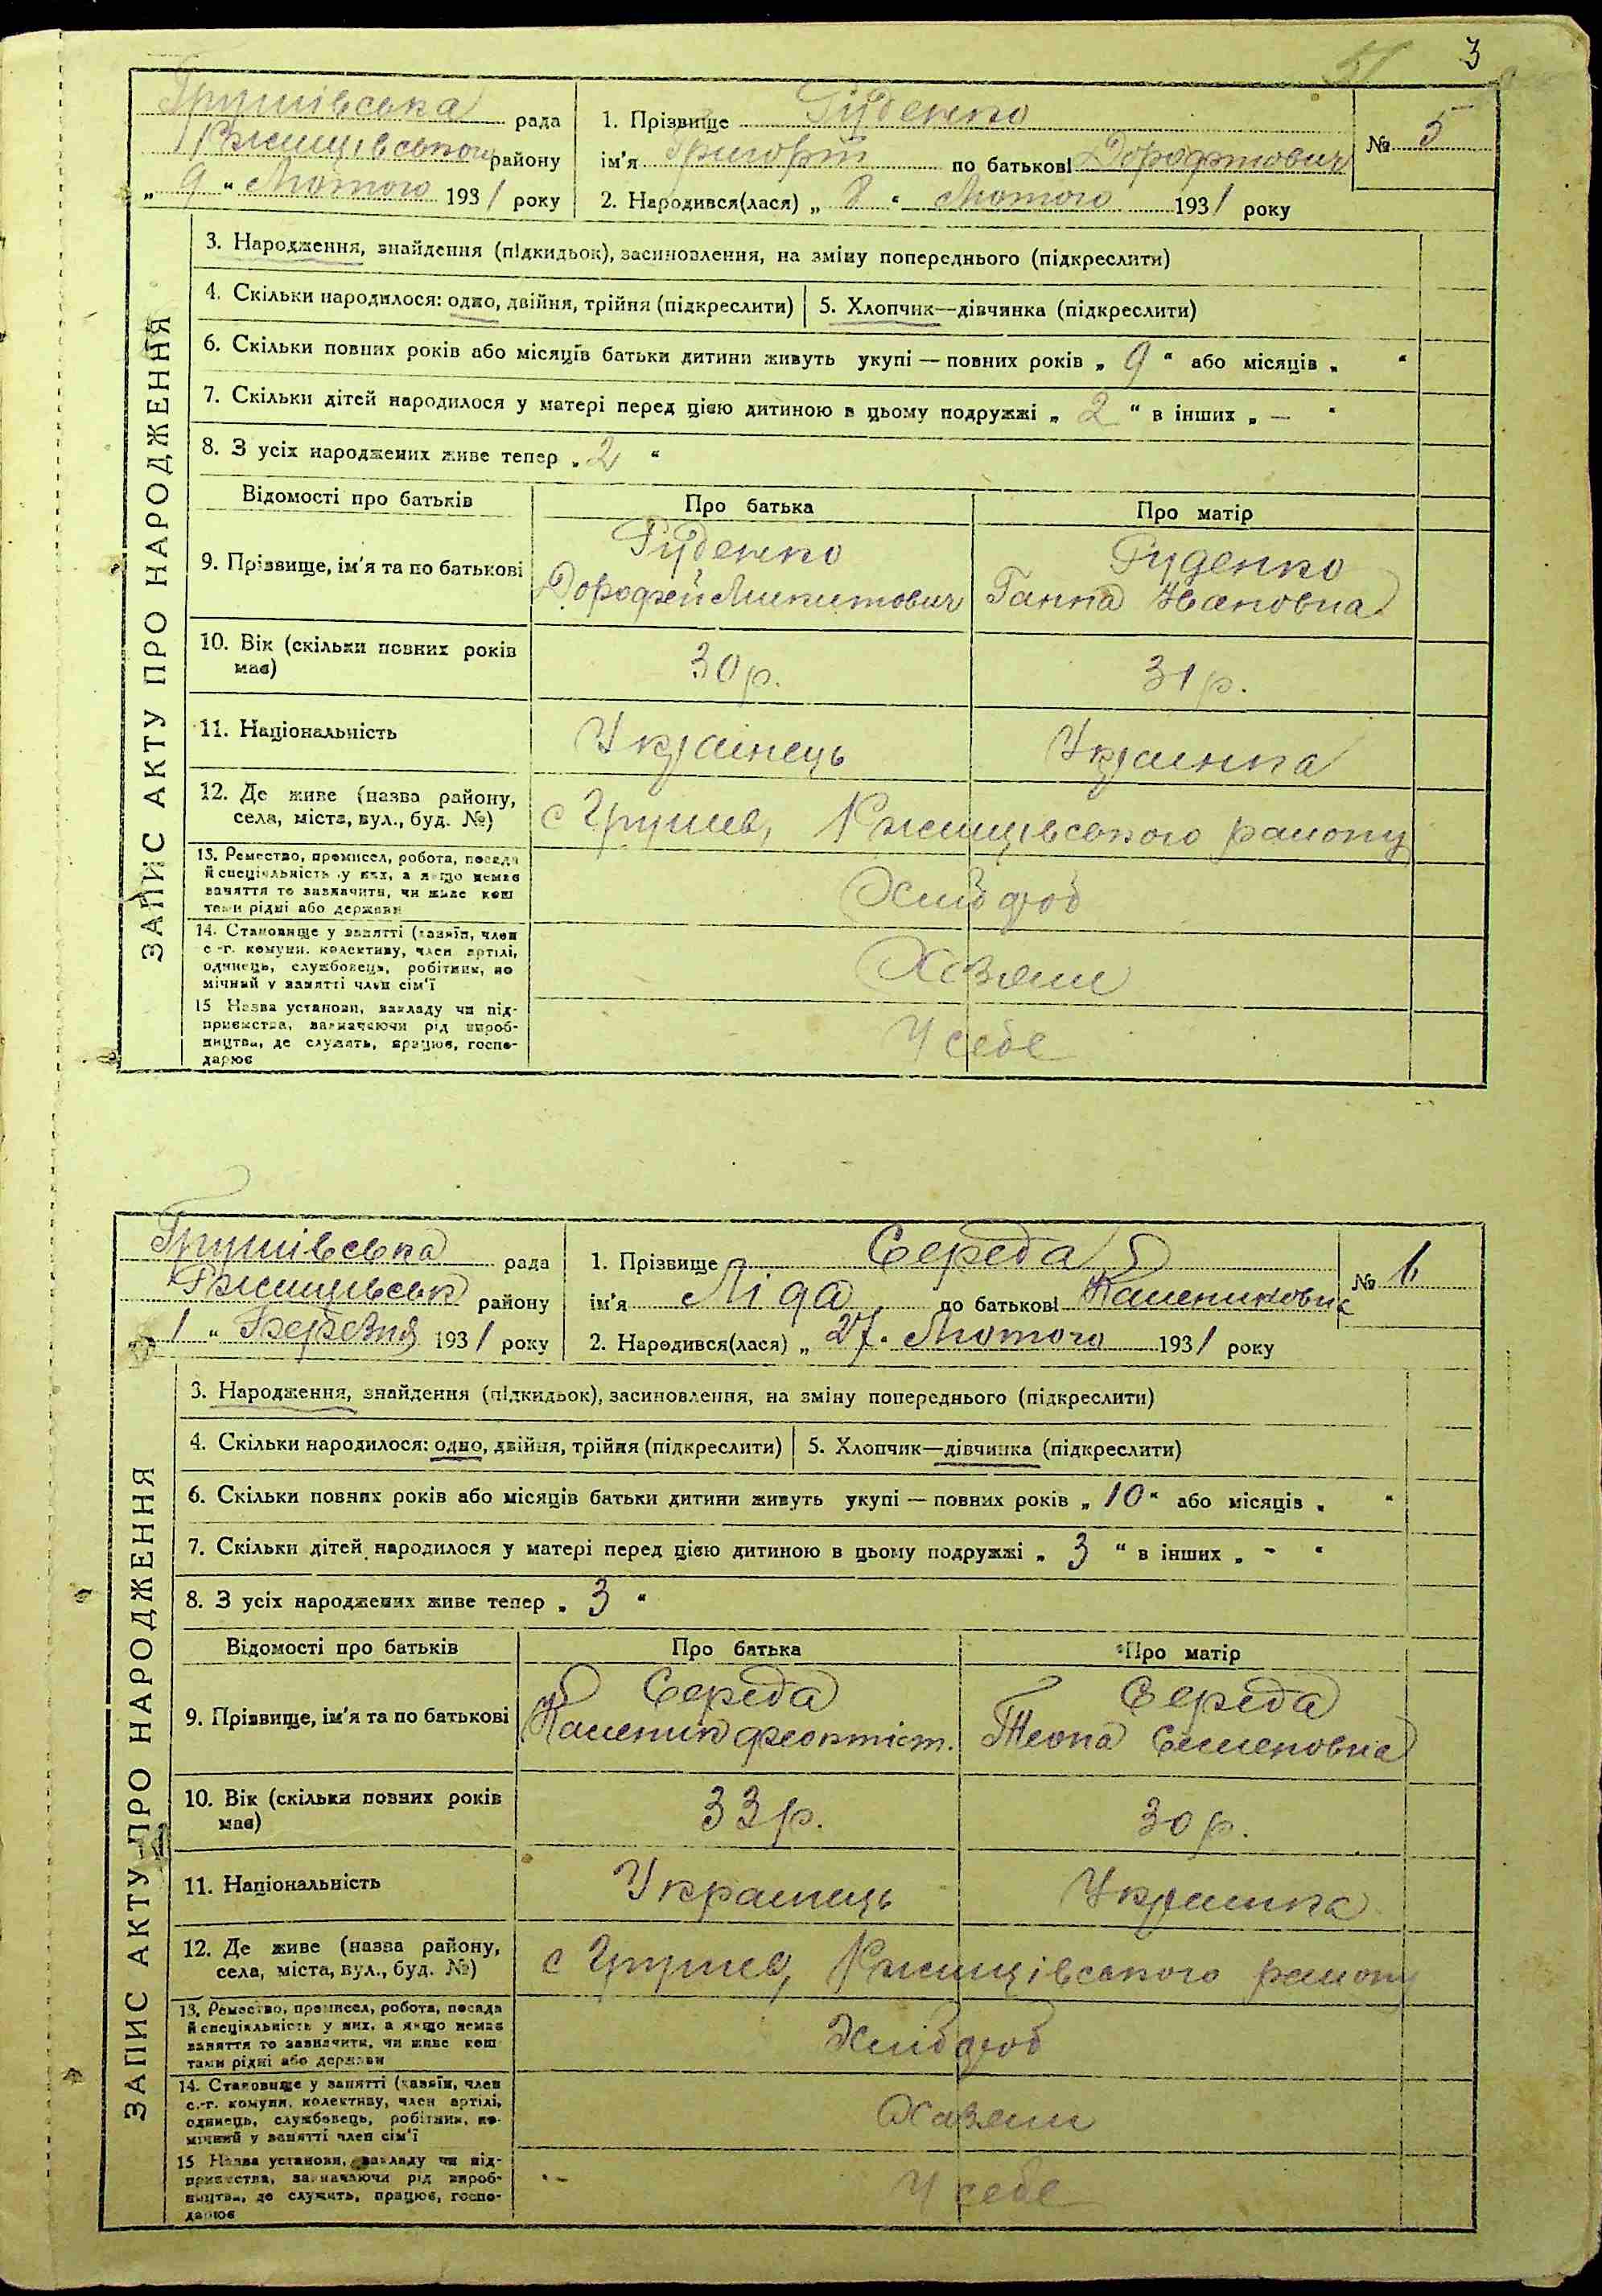 3
Грушівська рада
Ржищівського району
„ 9 “ Лютого 1931 року
1. Прізвище Руденко
ім'я Григорій по батькові Дорофійович
2. Народився(лася) „ 8 “ Лютого 1931 року
№ 5
ЗАПИС АКТУ ПРО НАРОДЖЕННЯ
3. Народження, знайдення (підкидьок), засиновлення, на зміну попереднього (підкреслити)
4. Скільки народилося: одно, двійня, трійня (підкреслити) 5. Хлопчик—дівчинка (підкреслити)
6. Скільки повних років або місяців батьки дитини живуть укупі — повних років „ 9 “ або місяців „ “
7. Скільки дітей народилося у матері перед цією дитиною в цьому подружжі „ 2 “ в інших „ — “
8. З усіх народжених живе тепер „ 2 “
Відомості про батьків Про батька Про матір
9. Прізвище, ім'я та по батькові
Руденко
Дорофей Микитович
Руденко
Ганна Івановна
10. Вік (скільки повних років
має)
30 р. 31 р.
11. Національність Українець Українка
12. Де живе (назва району,
села, міста, вул., буд. №)
с Грушев, Ржищівського району
13. Ремество, промисел, робота, посада
й спеціяльність у них, а якщо немає
заняття то зазначити, чи живе кош
тами рідні або держави
Хлібороб
14. Становище у занятті (хазяїн, член
с.-г. комуни, колективу, член артілі,
одинець, службовець, робітник, по
мічний у занятті член сім'ї
Хозяин
15 Назва установи, закладу чи під-
приємства, зазначаючи рід вироб-
ництва, де служить, працює, госпо-
дарює
У себе
Грушівська рада
Ржищівськ району
„ 1 “ Березня 1931 року
1. Прізвище Середа
ім'я Ліда по батькові Калениковна
2. Народився(лася) „ 27 “ Лютого 1931 року
№ 6
ЗАПИС АКТУ ПРО НАРОДЖЕННЯ
3. Народження, знайдення (підкидьок), засиновлення, на зміну попереднього (підкреслити)
4. Скільки народилося: одно, двійня, трійня (підкреслити) 5. Хлопчик—дівчинка (підкреслити)
6. Скільки повних років або місяців батьки дитини живуть укупі — повних років „ 10 “ або місяців „ “
7. Скільки дітей народилося у матері перед цією дитиною в цьому подружжі „ 3 “ в інших „ - “
8. З усіх народжених живе тепер „ 3 “
Відомості про батьків Про батька Про матір
9. Прізвище, ім'я та по батькові
Середа
Каленик Феоктіст.
Середа
Семеновна
10. Вік (скільки повних років
має)
33 р. 30 р.
11. Національність Украинець Украинка
12. Де живе (назва району,
села, міста, вул., буд. №)
с Грушев, Ржищівського району
13. Ремество, промисел, робота, посада
й спеціяльність у них, а якщо немає
заняття то зазначити, чи живе кош
тами рідні або держави
Хлібороб
14. Становище у занятті (хазяїн, член
с.-г. комуни, колективу, член артілі,
одинець, службовець, робітник, по-
мічний у занятті член сім'ї
Хазяин
15 Назва установи, закладу чи під-
приємства, зазначаючи рід вироб-
ництва, де служить, працює, госпо-
дарює
У себе